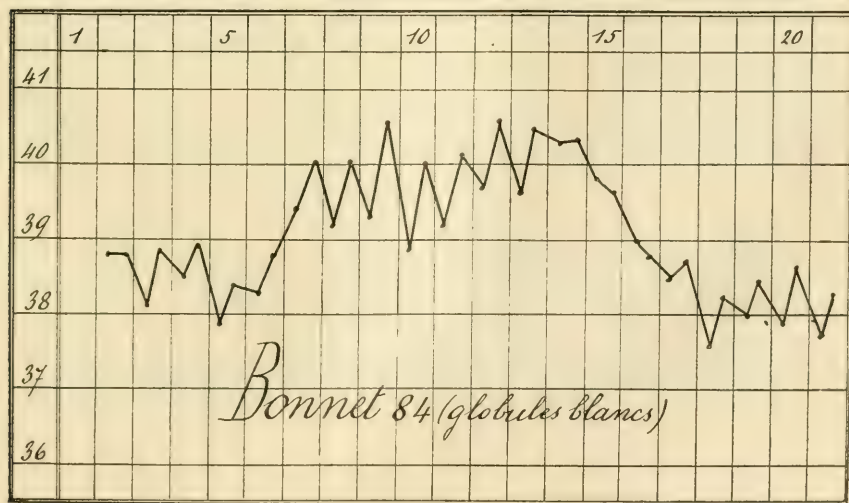 1 5 10 15 20
41
40
39
38
37
Bonnet 84 (globules blancs)
36